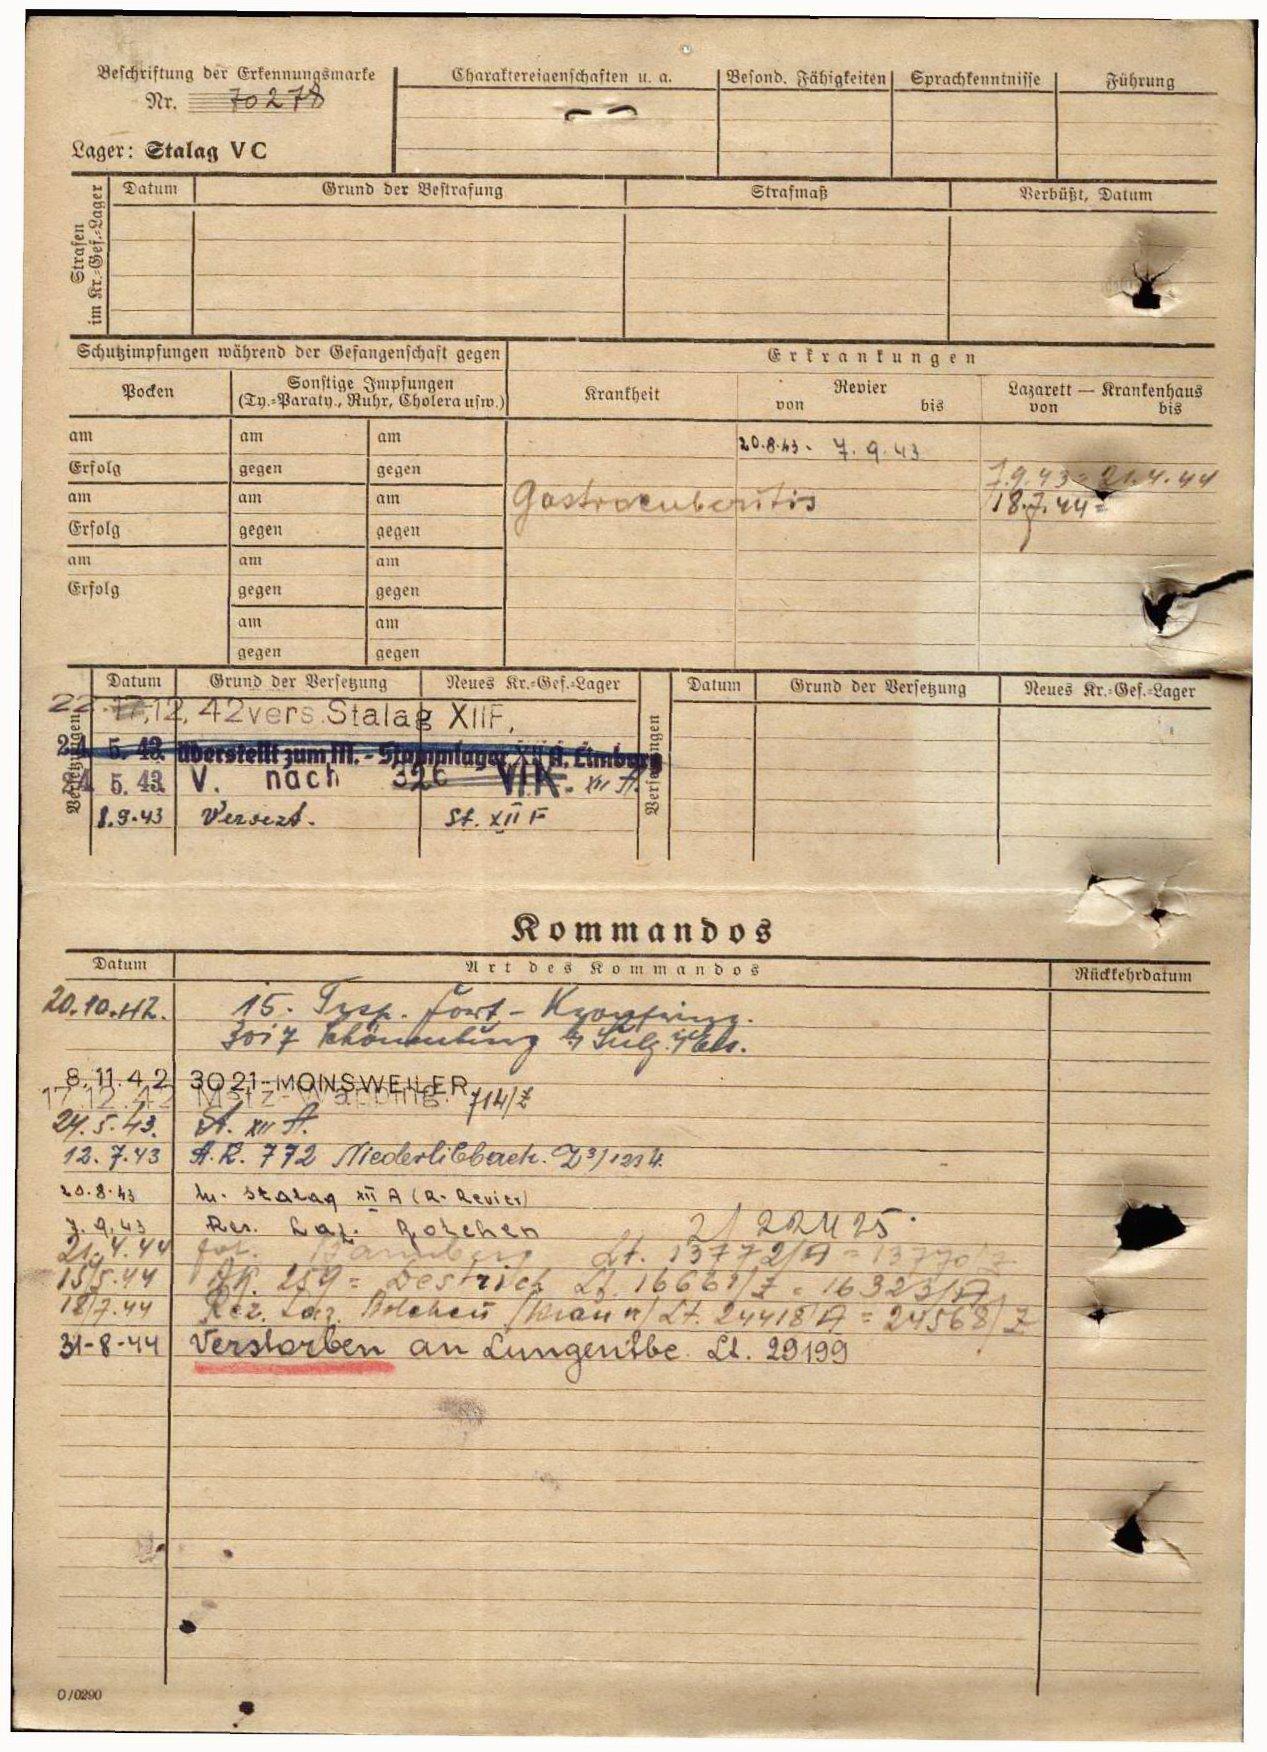 Beschriftung der Erkennungsmarke
Nr. 70278
Lager: Stalag V C
Charaktereigenschaften u. a.
Besond. Fähigkeiten
Sprachkenntnisse
Führung
Strafen im Kr.-Gef.-Lager
Datum
Grund der Bestrafung
Strafmaß
Verbüßt, Datum
Schutzimpfungen während der Gefangenschaft gegen
Erkrankungen
Pocken
Sonstige Impfungen
(Ty.-Paraty., Ruhr, Cholera usw.)
Krankheit
Revier
von bis
Lazarett — Krankenhaus
von bis
am am am
20.8.43 - 7.9.43
Erfolg gegen gegen
7.9.43 - 21.4.44
am am am
18.7.44 =
Erfolg gegen gegen
am am am
Erfolg gegen gegen
am am
gegen gegen
Versetzungen
Datum
Grund der Versetzung
Neues Kr.-Gef.-Lager
Versetzungen
Datum
Grund der Versetzung
Neues Kr.-Gef.-Lager
22. 17.12.42 vers. Stalag XII F.
24. 5. 43. überstellt zum M.-Stammlager XII A, Limburg
24. 5. 43. V. nach 326 VI K. XII A.
1.9.43 Versezt. St. XII F
Kommandos
Datum
Art des Kommandos
Rückkehrdatum
20.10.42. 15.
3017
8.11.42 3021-MONSWEILER
17.12.42 Metz-Wapping. 714/Z
24.5.43. St. XII A.
12.7.43 A.K. 772 Niederlibbach. Z3/1214.
20.8.43 In. Stalag XII A (R. Revier)
7.9.43 Res. Laz. Bolchen 2/22425.
21.4.44 Lt. 13772/A = 13770/Z
15/5.44 A.K. 259 = Destrich Lt. 16661/Z = 16323/A
18/7.44 Rez. Laz. Bolchen Lt. 24418/A = 24568/Z
31-8-44 Verstorben an Lungentbc. Lt. 29199
O/0290